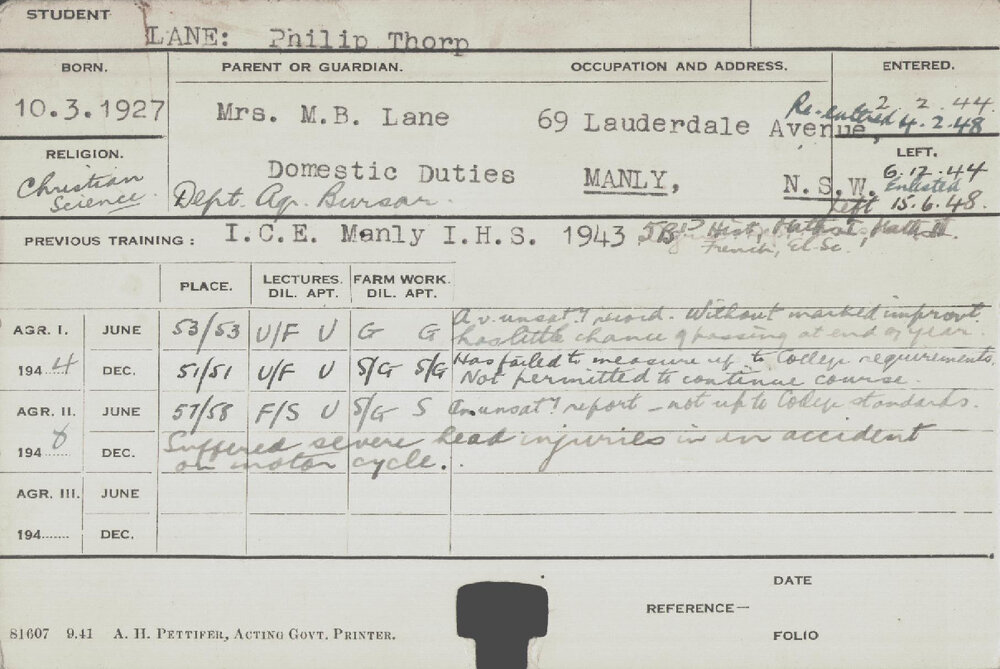 STUDENT
LANE: Philip Thorp
BORN. PARENT OR GUARDIAN. OCCUPATION AND ADDRESS. ENTERED.
10.3.1927 Mrs. M.B. Lane 69 Lauderdale Avenue, 2.2.44
Re-entered 4.2.48
RELIGION. LEFT.
Christian Science Domestic Duties MANLY, N.S.W. 6.12.44
Enlisted
Dept. Agr. Bursar. Left 15.6.48.
PREVIOUS TRAINING: I.C.E. Manly I.H.S. 1943 5 B's Hist, Maths I, Maths II.
French, El. Sc.
PLACE. LECTURES. DIL. APT. FARM WORK. DIL. APT.
AGR. I. JUNE 53/53 U/F U G G A v. unsat'y record. Without marked improvt
has little chance of passing at end of year.
194 4 DEC. 51/51 U/F U S/G S/G Has failed to measure up to College requirements.
Not permitted to continue course.
AGR. II. JUNE 57/58 F/S U S/G S An unsat'y report - not up to College standards.
194 8 DEC. Suffered severe head injuries in an accident
on motor cycle.
AGR. III. JUNE
194....... DEC.
DATE
REFERENCE—
FOLIO
81607 9.41 A. H. PETTIFER, ACTING GOVT. PRINTER.